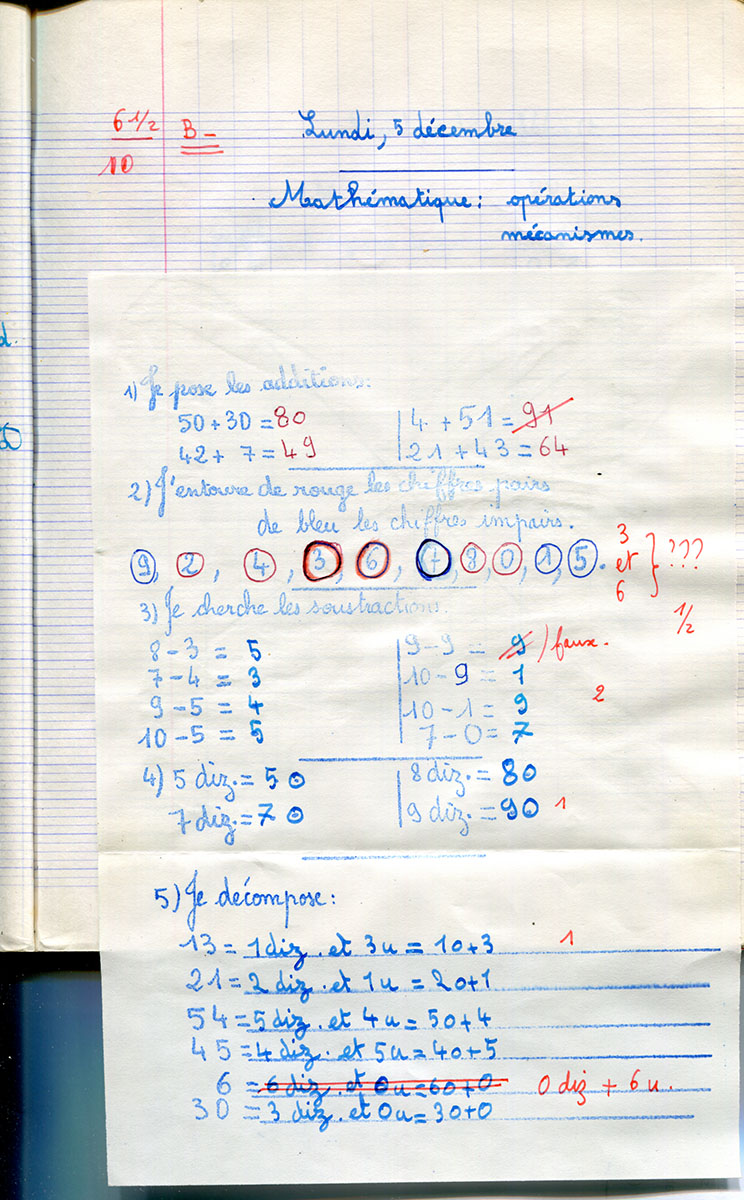 6 1/2 B - Lundi, 5 décembre
10
Mathématique : opérations
mécanismes.
d.
1) Je pose les additions:
50 + 30 = 80 4 + 51 = 91
42 + 7 = 49 21 + 43 = 64
2) J'entoure de rouge les chiffres pairs
de bleu les chiffres impairs.
9, 2, 4, 3, 6, 7, 8, 0, 1, 5. 3 et 6 } ???
1/2
3) Je cherche les soustractions.
8 - 3 = 5 9 - 9 = 9 ) faux.
7 - 4 = 3 10 - 9 = 1
9 - 5 = 4 10 - 1 = 9 2
10 - 5 = 5 7 - 0 = 7
4) 5 diz. = 50 8 diz. = 80
7 diz. = 70 9 diz. = 90 1
5) Je décompose :
13 = 1 diz. et 3 u = 10+3 1
21 = 2 diz. et 1u = 20+1
54 = 5 diz. et 4u = 50+4
45 = 4 diz. et 5u = 40+5
6 = 6 diz. et 0u = 60+0 0 diz + 6 u.
30 = 3 diz. et 0u = 30+0